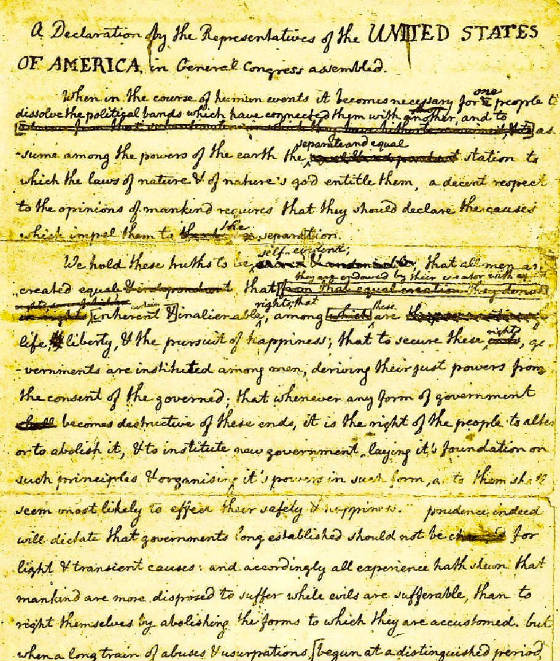 A Declaration by the Representatives of the UNITED STATES
OF AMERICA, in General Congress assembled.
When in the course of human events it becomes necessary for one people to
dissolve the political bands which have connected them with another, and to
as
separate and equal
-sume among the powers of the earth the station to
which the laws of nature & of nature's god entitle them, a decent respect
to the opinions of mankind requires that they should declare the causes
which impel them to the separation.
self-evident;
We hold these truths to be that all men are
they are endowed by their creator with
created equal & independant that from that equal creation they derive
rights, that these
inherent & inalienable among which are
rights
life, & liberty, & the pursuit of happiness; that to secure these go
-vernments are instituted among men, deriving their just powers from
the consent of the governed; that whenever any form of government
shall becomes destructive of these ends, it is the right of the people to alter
or to abolish it, & to institute new government, laying it's foundation on
such principles & organising it's powers in such form, as to them shall
seem most likely to effect their safety & happiness. prudence indeed
will dictate that governments long established should not be changed for
light & transient causes: and accordingly all experience hath shewn that
mankind are more disposed to suffer while evils are sufferable, than to
right themselves by abolishing the forms to which they are accustomed. but
when a long train of abuses & usurpations [begun at a distinguished period,